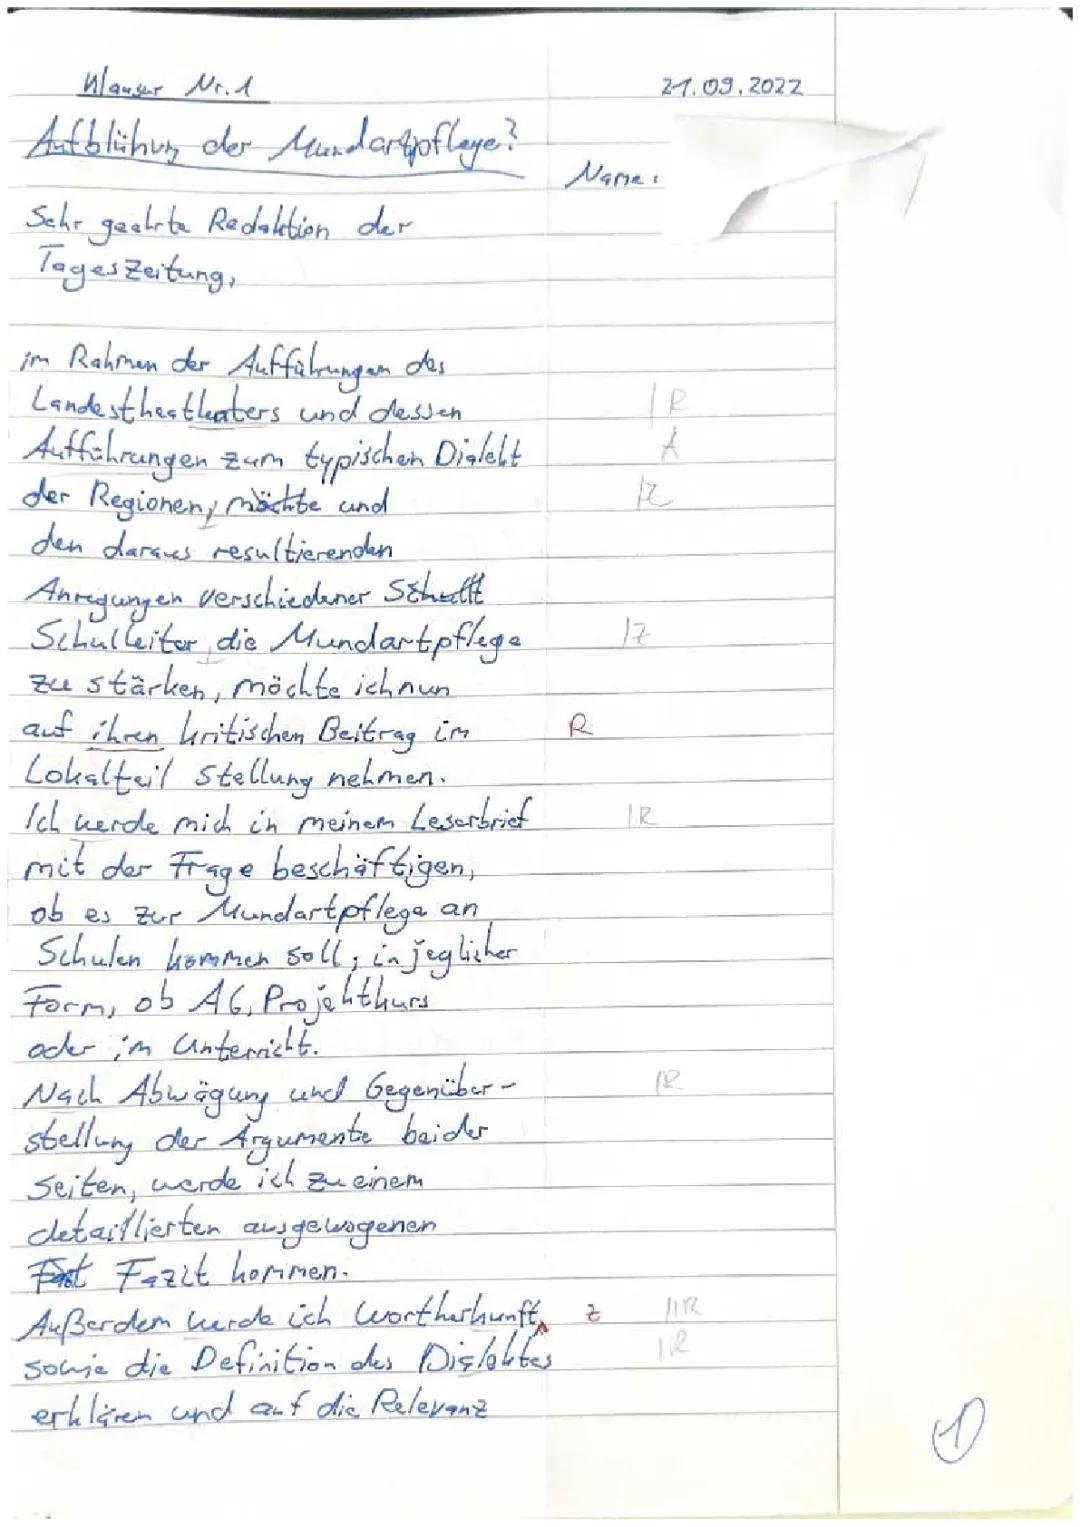 Klausur Nr. 1
21.09.2022
Aufblühung der Mundartpflege?
Name:
Sehr geehrte Redaktion der
Tageszeitung,
im Rahmen der Aufführungen des
Landestheatheaters und dessen
R
Aufführungen zum typischen Dialekt
A
der Regionen, möchte und
Z
den daraus resultierenden
Anregungen verschiedener
Schulleiter, die Mundartpflege
Z
zu stärken, möchte ich nun
auf ihren kritischen Beitrag im
R
Lokalteil Stellung nehmen.
Ich werde mich in meinem Leserbrief
R
mit der Frage beschäftigen,
ob es zur Mundartpflege an
Schulen kommen soll, in jeglicher
Form, ob AG, Projektkurs
oder im Unterricht.
Nach Abwägung und Gegenüber-
R
stellung der Argumente beider
Seiten, werde ich zu einem
detaillierten ausgewogenen
Fazit kommen.
Außerdem werde ich Wortherkunft,
Z
R
sowie die Definition des Dialektes
R
erklären und auf die Relevanz
1